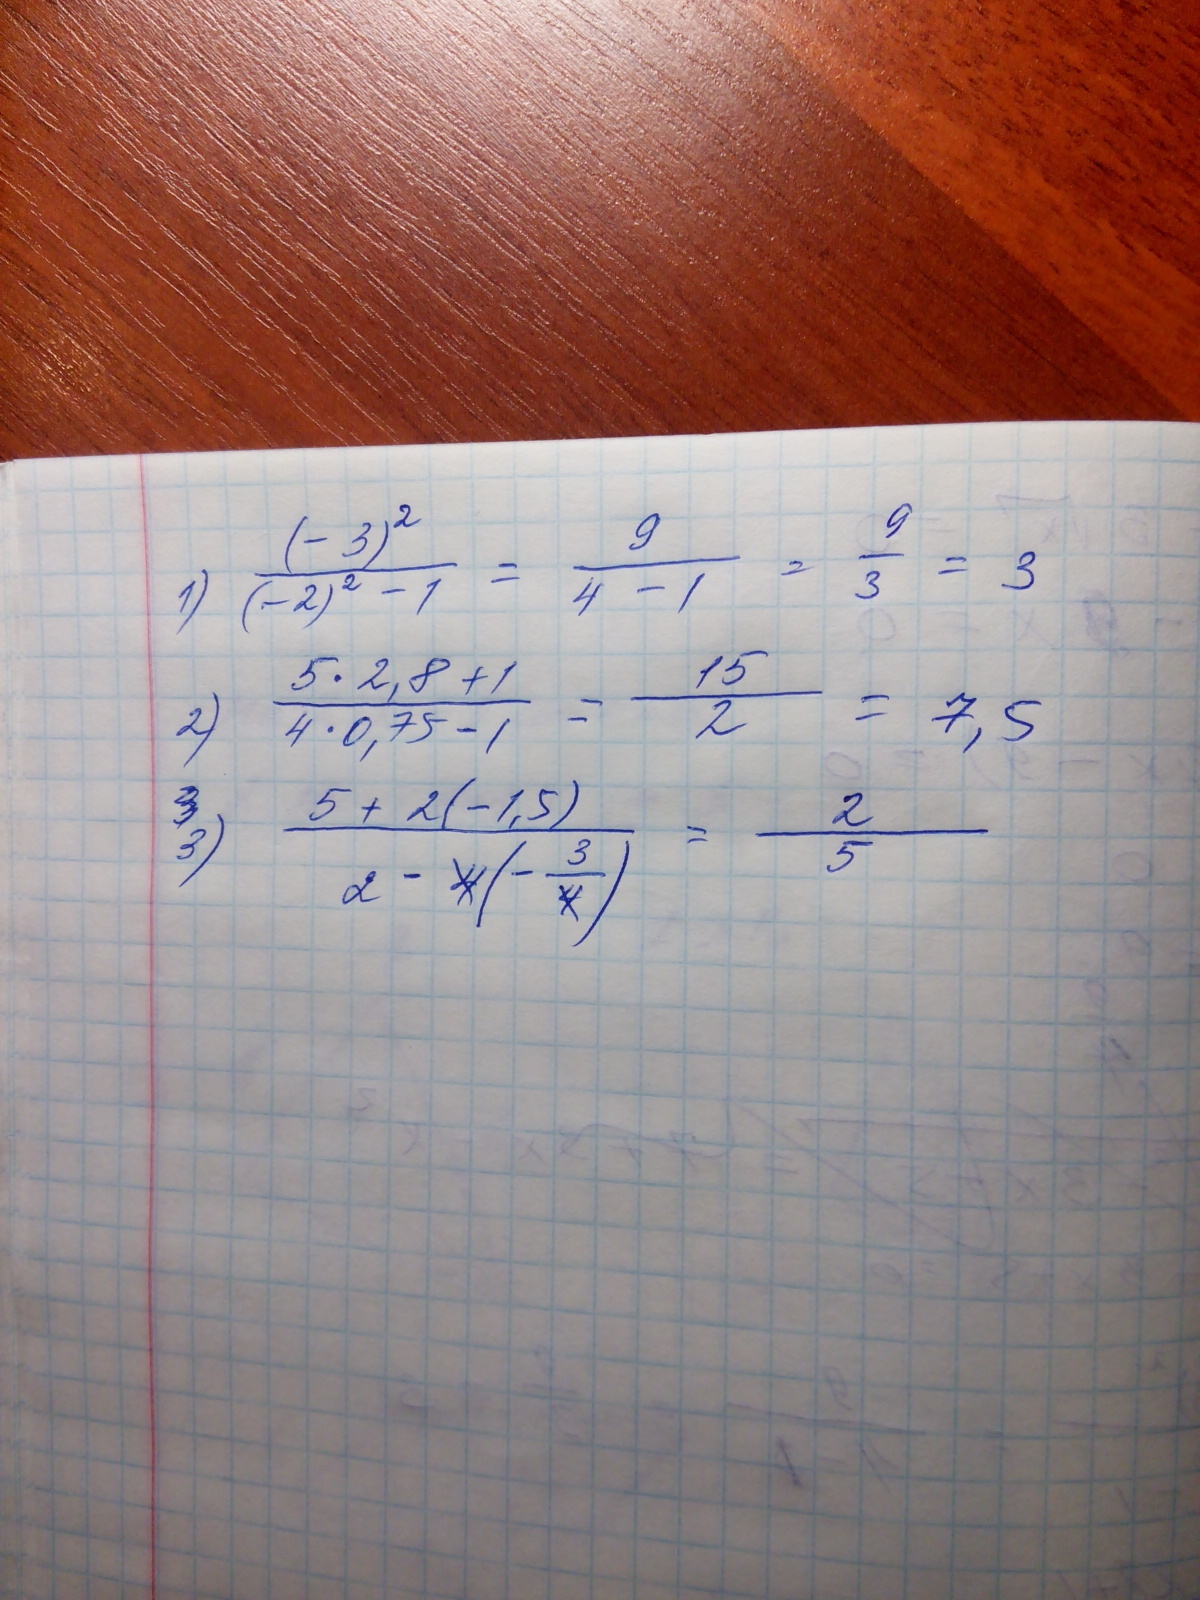 1) (-3)² / ((-2)² - 1) = 9 / (4 - 1) = 9/3 = 3
2) (5·2,8 + 1) / (4·0,75 - 1) = 15/2 = 7,5
3
3) (5 + 2(-1,5)) / (2 - 4(-3/4)) = 2/5